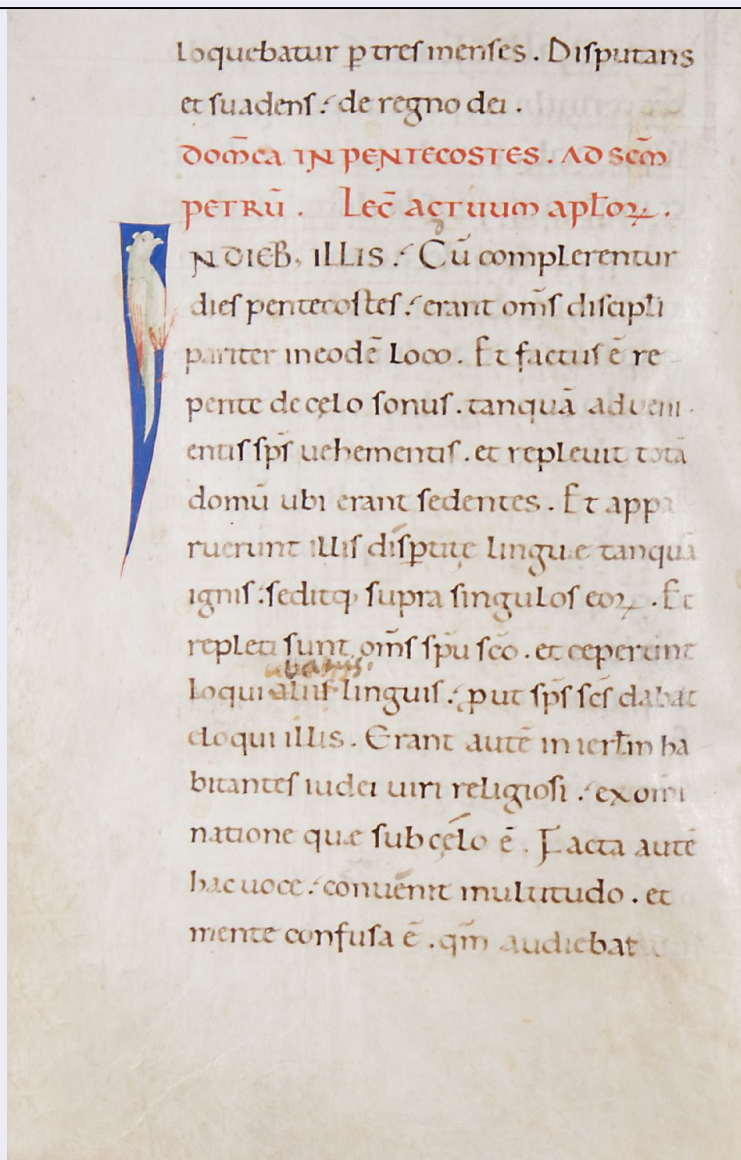 loquebatur ꝑ tres menses. Disputans
et suadens: de regno dei.
DOM̅CA IN PENTECOSTES. AD SCM̅
PETRŪ. Lec̄ actuum apl̄oꝝ.
IN DIEB, ILLIS: Cū complerentur
dies pentecostes: erant om̅s discipli
pariter in eodē loco. Et factus ē re
pente de cęlo sonus. tanquā adveni
entis sp̅s uehementis. et repleuit totā
domū ubi erant sedentes. Et appa
ruerunt illis disꝑtitę linguæ tanquā
ignis: seditq, supra singulos eoꝝ. Et
repleti sunt om̅s sp̅u sc̅o. et ceperunt
loqui aliis linguis: ꝓut sp̅s sc̅s dabat
eloqui illis. Erant autē in ierl̅m ha
bitantes iudei uiri religiosi: ex omni
natione quæ sub cęlo ē. Facta autē
hac uoce: conuenit multitudo. et
mente confusa ē. qm̅ audiebat